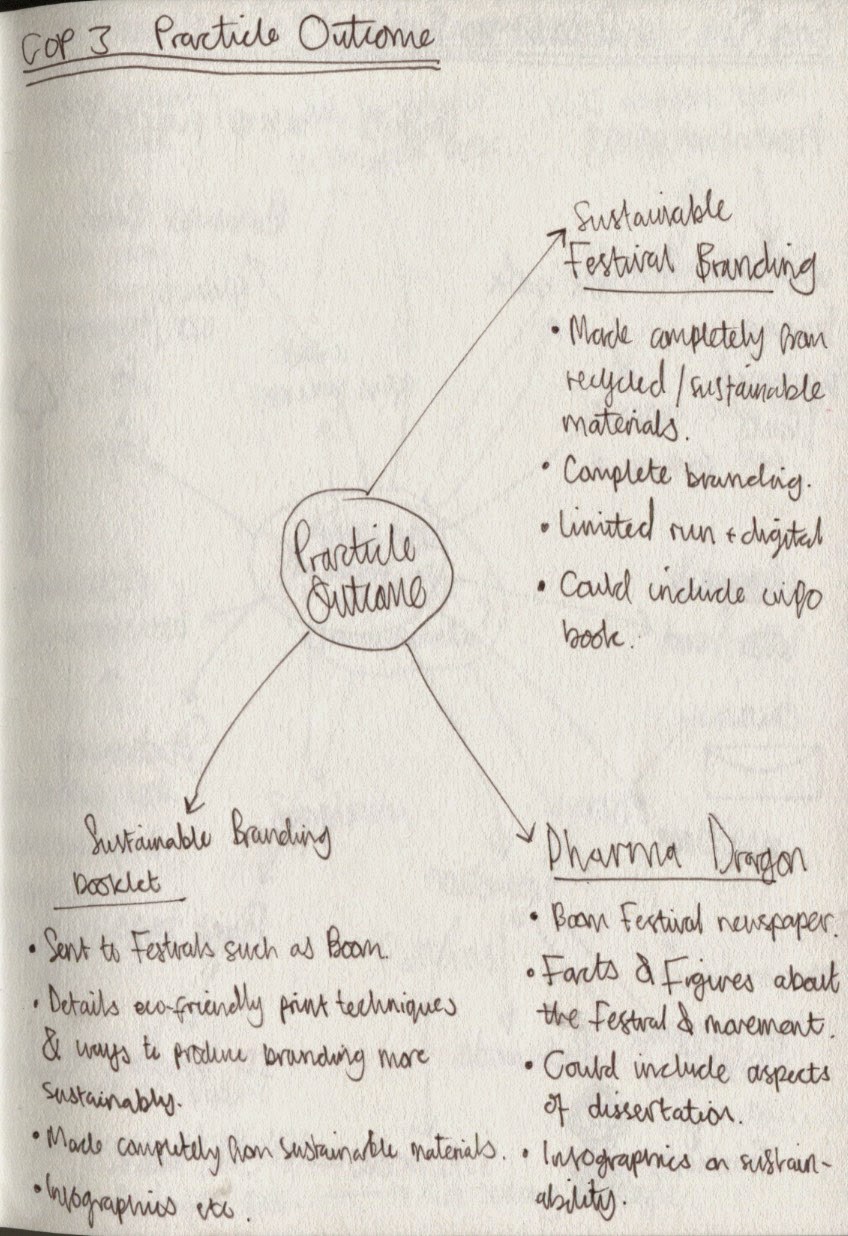 COP 3 Practicle Outcome
Practicle
Outcome
Sustainable
Festival Branding
• Made completely from
recycled/sustainable
materials.
• Complete branding.
• Limited run + digital
• Could include info
book.
Sustainable Branding
Booklet
• Sent to Festivals such as Boom.
• Details eco-friendly print techniques
& ways to produce branding more
sustainably.
• Made completely from sustainable materials.
• Infographics etc.
Dharma Dragon
• Boom Festival newspaper.
• Facts & Figures about
the Festival & movement.
• Could include aspects
of dissertation.
• Infographics on sustain-
ability.